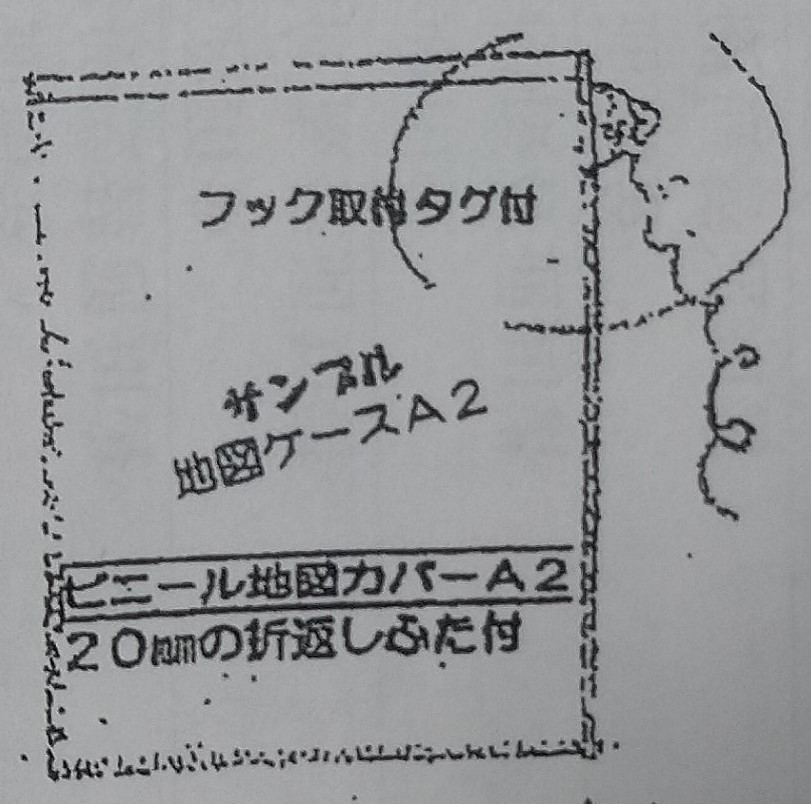 フック取付タグ付
サンプル
地図ケースA2
ビニール地図カバーA2
20㎜の折返しふた付